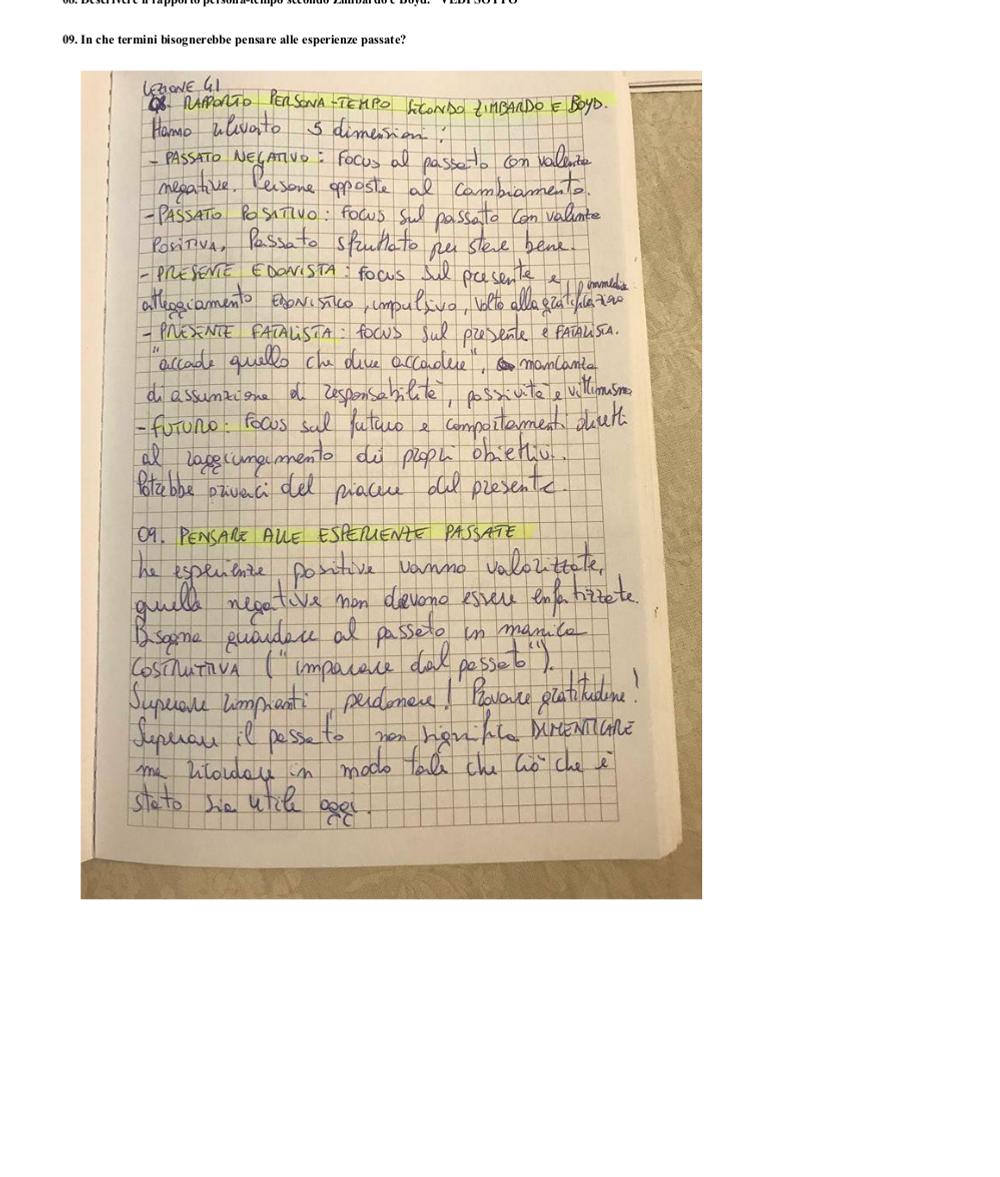 08. Descrivere il rapporto persona-tempo secondo Zimbardo e Boyd. VEDI SOTTO
09. In che termini bisognerebbe pensare alle esperienze passate?
LEZIONE 41
08. RAPPORTO PERSONA-TEMPO SECONDO ZIMBARDO E BOYD.
Hanno rilevato 5 dimensioni:
- PASSATO NEGATIVO: Focus al passato con valenze
negative. Persone opposte al cambiamento.
- PASSATO POSITIVO: focus sul passato con valenze
POSITIVA, Passato sfruttato per stare bene.
- PRESENTE EDONISTA: focus sul presente e
atteggiamento EDONISTICO, impulsivo, volto alla gratificazione immediata
- PRESENTE FATALISTA: focus sul presente e FATALISTA.
"accade quello che deve accadere", mancanza
di assunzione di responsabilità, passività e vittimismo
- FUTURO: Focus sul futuro e comportamenti diretti
al raggiungimento dei propri obiettivi.
Potrebbe privarci del piacere del presente.
09. PENSARE ALLE ESPERIENZE PASSATE
Le esperienze positive vanno valorizzate,
quelle negative non devono essere enfatizzate.
Bisogna guardare al passato in maniera
COSTRUTTIVA ("imparare dal passato").
Superare rimpianti, perdonare! Provare gratitudine!
Superare il passato non significa DIMENTICARE
ma ricordare in modo tale che ciò che è
stato sia utile oggi.